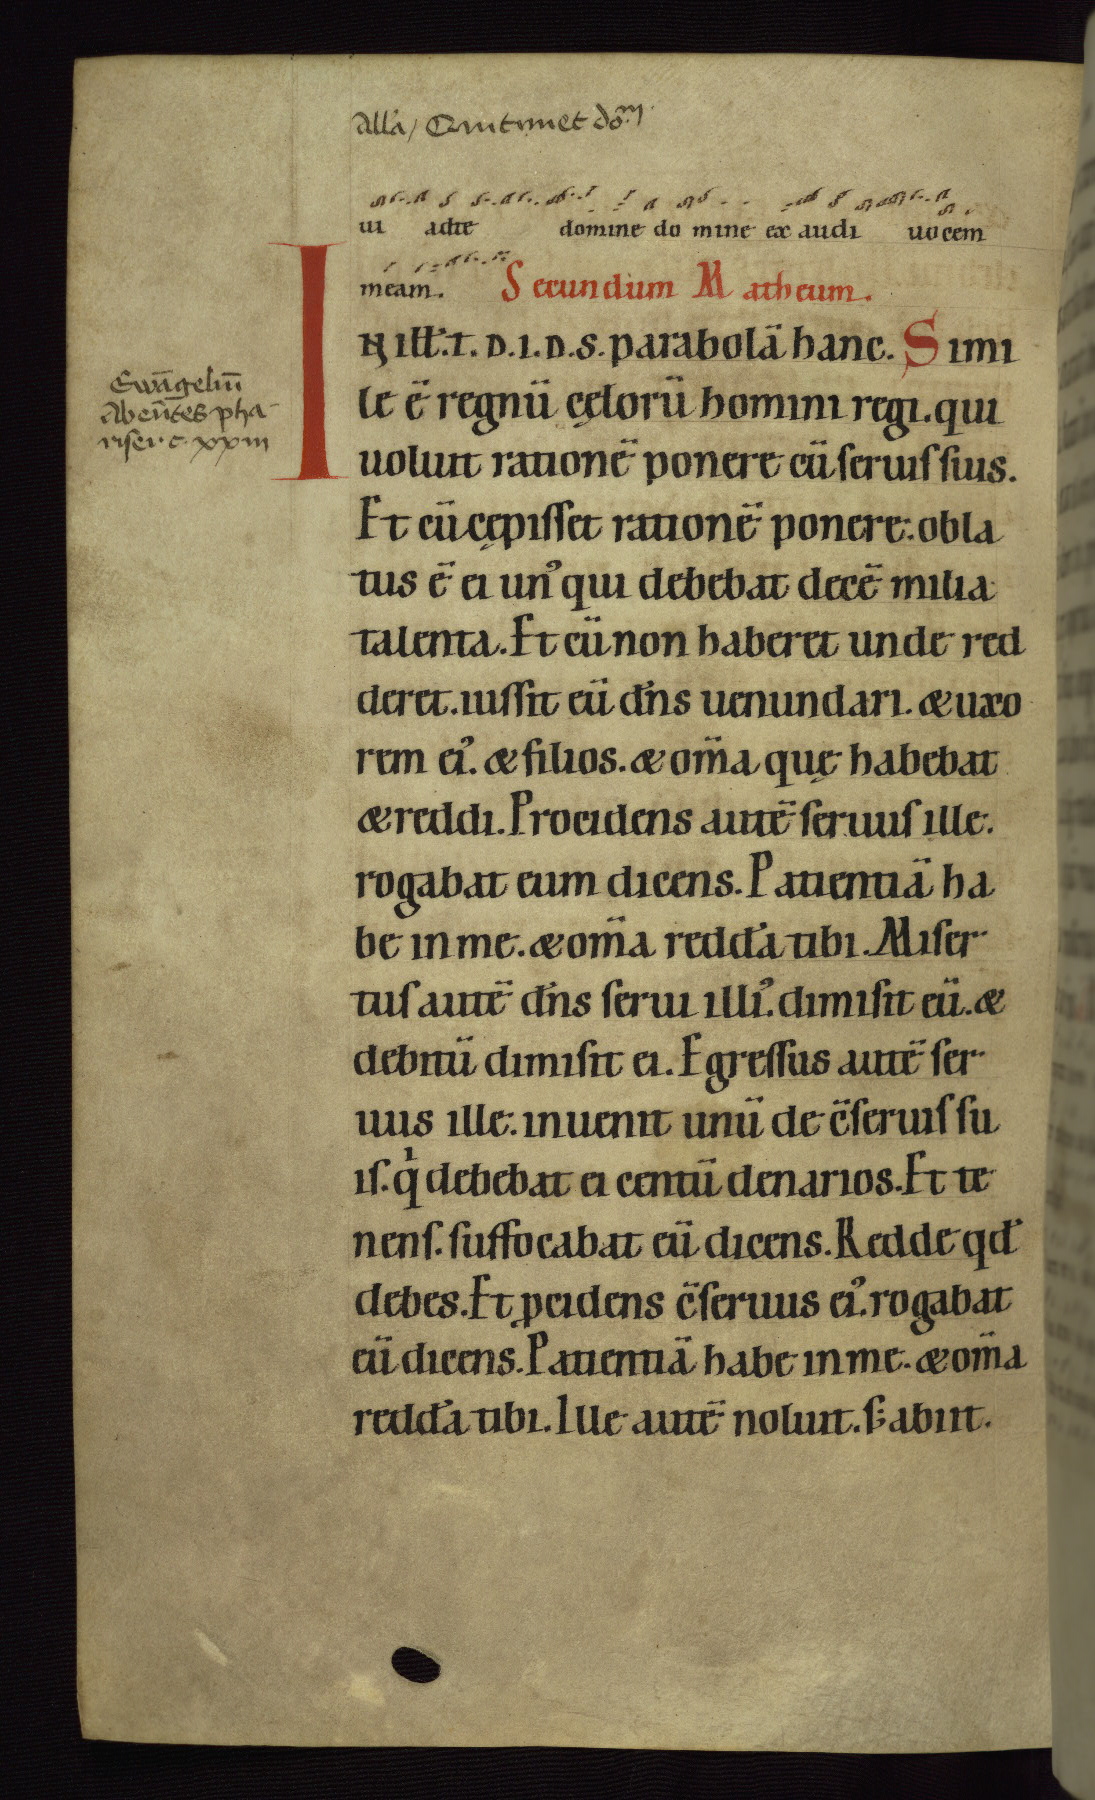 Alla / Qui timet do<sup>m</sup>
ui ad te domine do mine ex audi uocem
meam. Secundum Matheum.
IN ill̃. T. D. I. D. S. parabolā hanc. Simi
le ē regnū cęlorū homini regi. qui
uoluit rationē ponere cū seruis suis.
Et cū cępisset rationē ponere: obla
tus ē ei unꝰ qui debebat decē milia
talenta. Et cū non haberet unde red
deret. iussit eū dñs uenundari. & uxo
rem eiꝰ. & filios. & om̄a quę habebat
& reddi. Procidens autē seruus ille.
rogabat eum dicens. Patientiā ha
be in me. & om̄a reddā tibi. Miser
tus autē dñs serui illiꝰ. dimisit eū. &
debitū dimisit ei. Egressus autē ser
uus ille. inuenit unū de c̄seruis su
is. qͥ debebat ei centū denarios. Et te
nens. suffocabat eū dicens. Redde qđ
debes. Et ꝓcidens c̄seruus eiꝰ. rogabat
eū dicens. Patientiā habe in me. & om̄a
reddā tibi. Ille autē noluit. sꝫ abiit.
Ewāgeliū
Abeūtes pha
risei c. xxiii